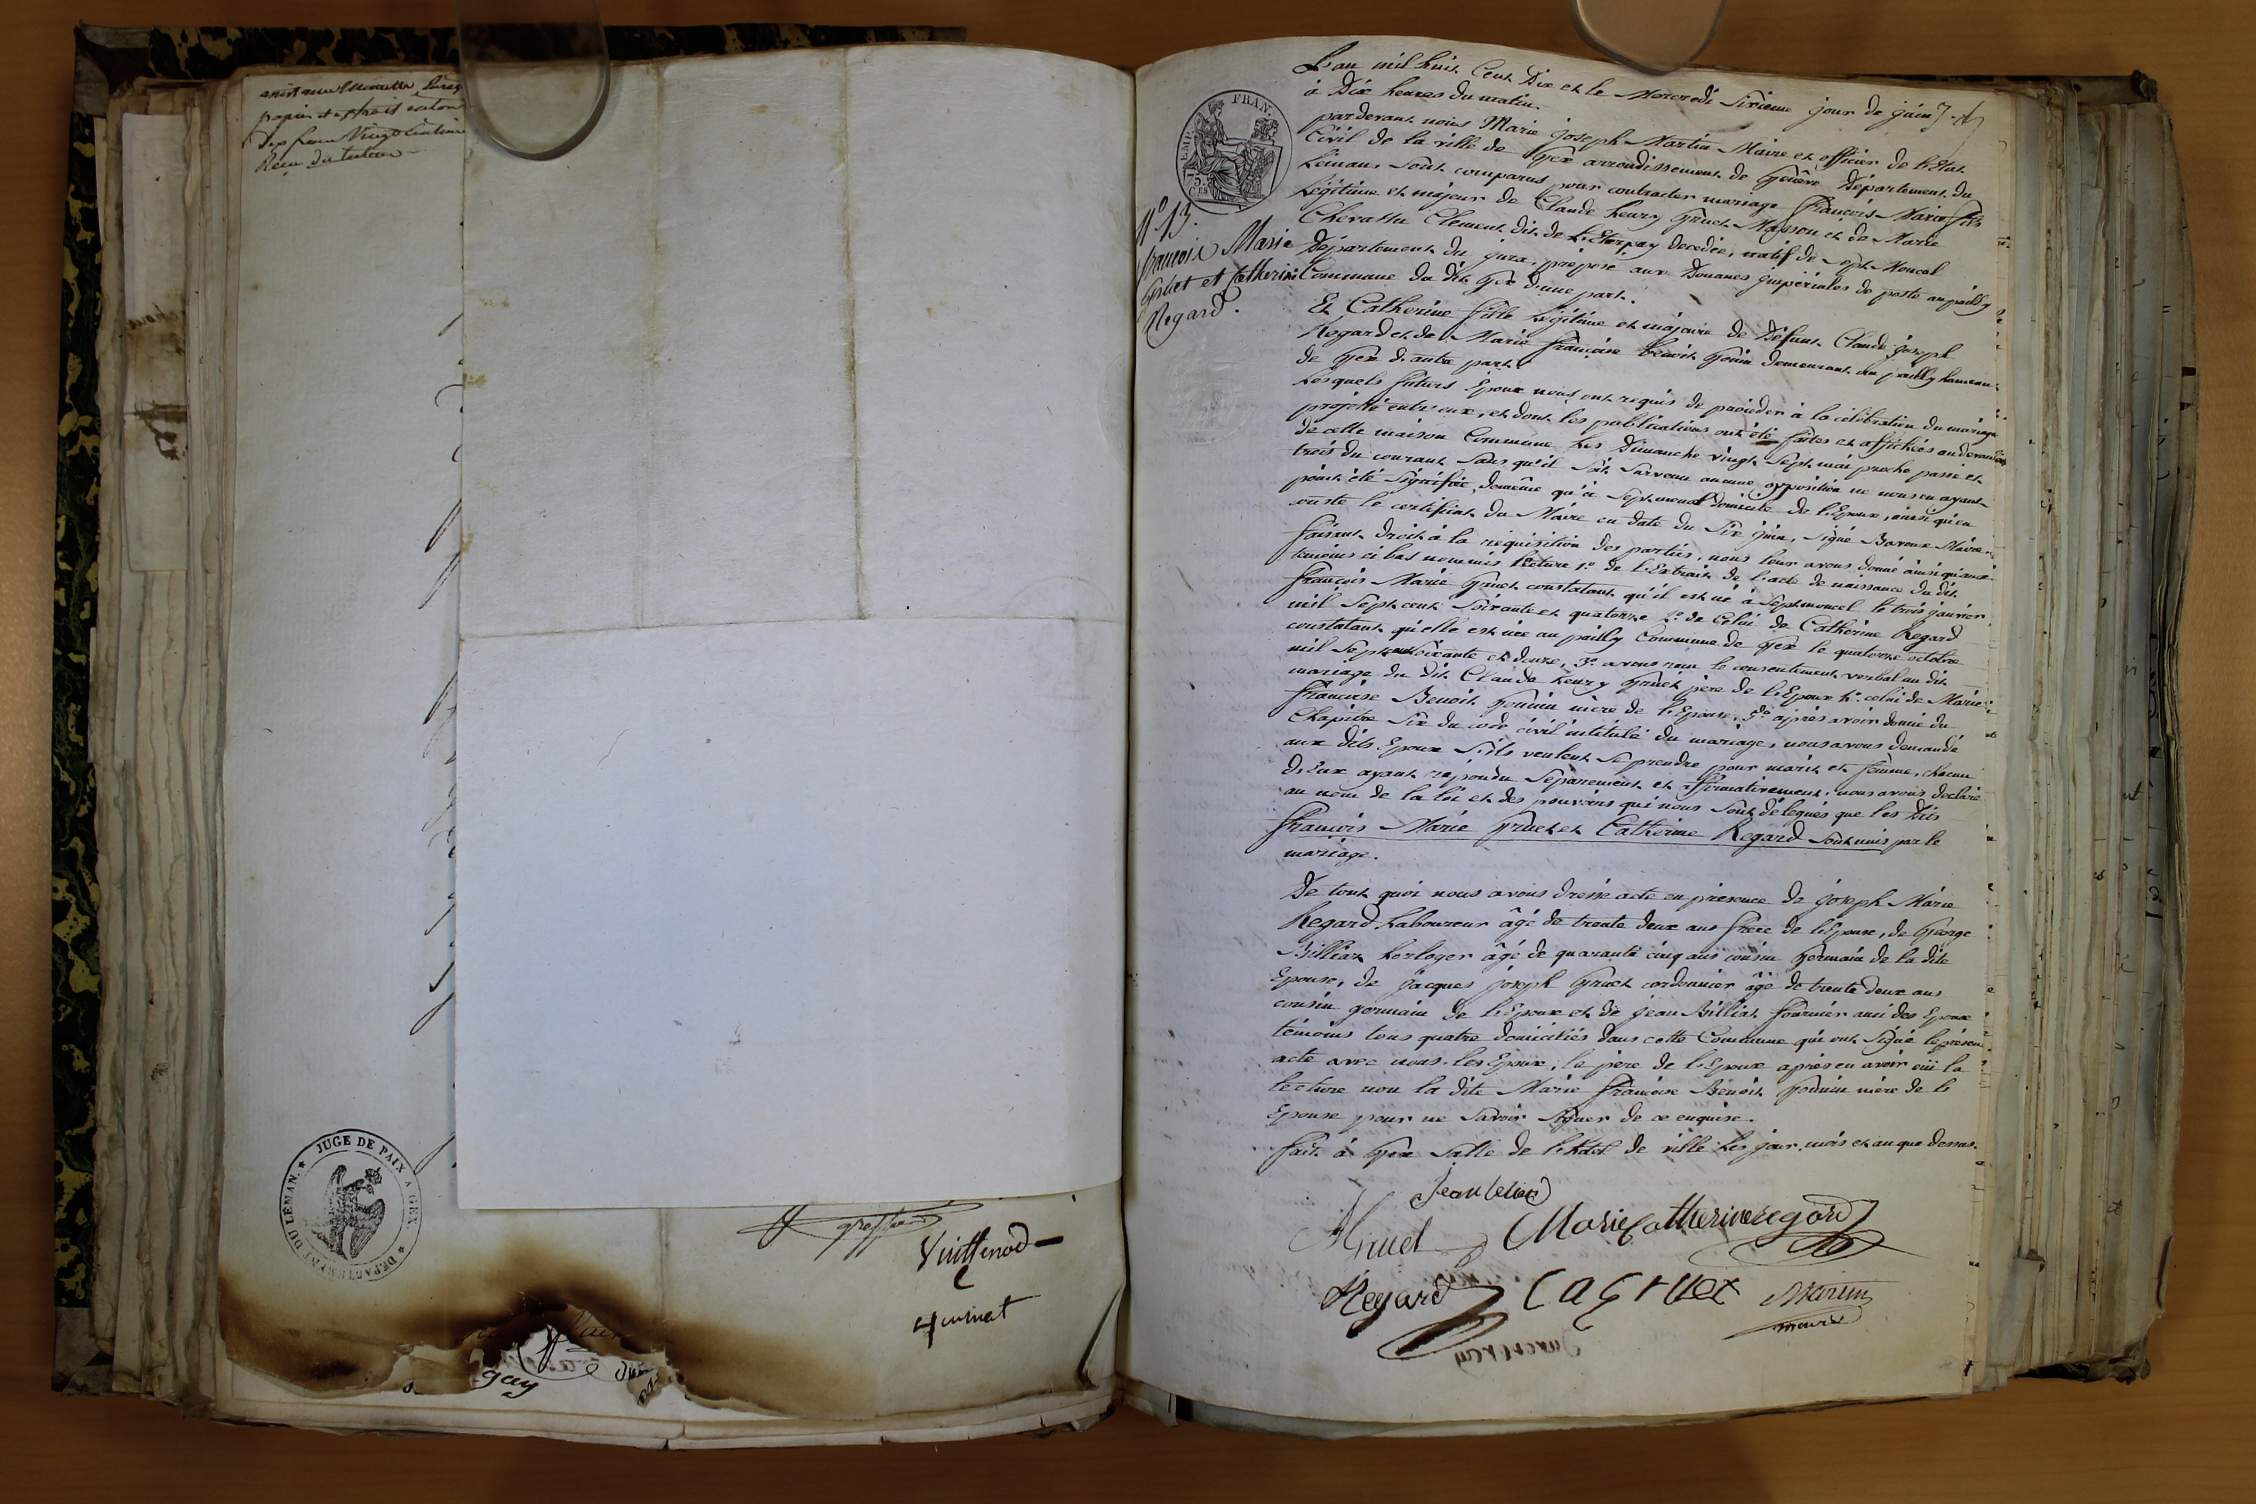 papier et
Dix francs Vingt Centimes
Reçu du tuteur
JUGE DE PAIX A GEX
DEPARTEMENT DU LEMAN
Vuittenod
gay
EMP. FRAN.
75 C.
N.º 13.
françois Marie
Gruet et Catherine
Regard.
L'an mil huit Cent Dix et le Mercredi Sixieme jour de juin
à Dix heures du matin.
pardevant nous Marie joseph Martin Maire et officier de l'Etat
Civil de la ville de Gex arrondissement de Genêve Département du
Léman, sont comparus pour contracter mariage françois Marie fils
Légitime et majeur de Claude henry Gruet Masson et de Marie
Chevassu Clement dit de L'Etorpay decedée, natif de Sept Moncel
Département du jura, préposé aux Douanes jmpériales de poste au pailly
Commune du dit Gex d'une part.
Et Catherine fille Légitime et majeure de Défunt Claude joseph
Regard et de Marie françoise Benoit Gonin demeurant au pailly hameau
de Gex d'autre part.
Lesquels futurs Epoux nous ont requis de procéder à la célébration du mariage
projetté entr'eux, et dont les publications ont été faites et affichées audevant
de cette maison Commune Les Dimanche vingt Sept mai proche passé et
trois du courant Sans qu'il Soit Survenu aucune opposition ne nous en ayant
point été Signifiée, demême qu'à Septmoncel domicile de l'Epoux, ainsi qu'en
conste le certificat du Maire en date du Six juin, Signé Bavoux Maire.
faisant droit à la requisition des parties, nous leur avons donné ainsi qu'aux
temoins ci bas nommés lecture 1.º de l'Extrait de l'acte de naissance du dit
françois Marie Gruet constatant qu'il est né à Septmoncel le trois janvier
mil Sept cent Soixante et quatorze 2.º de Celui de Catherine Regard
constatant qu'elle est née au pailly Commune de Gex le quatorze octobre
mil Sept cent Soixante et douze, 3.º avons reçu le consentement verbal au dit
mariage du dit Claude henry Gruet père de l'Epoux 4.º celui de Marie
françoise Benoit Gonin mère de l'Epouse, 5.º après avoir donné du
Chapitre Six du code civil intitulé du mariage, nous avons demandé
aux dits Epoux S'ils veulent Se prendre pour marit et femme, chacun
d'Eux ayant repondu Séparement et affirmativement, nous avons déclaré
au nom de la loi et des pouvoirs qui nous Sont délégués que les Dits
françois Marie Gruet et Catherine Regard Sont unis par le
mariage.
De tout quoi nous avons dressé acte en présence de joseph Marie
Regard Laboureur âgé de trente deux ans frère de l'Epouse, de George
Billiat horloger âgé de quarante cinq ans cousin Germain de la dite
Epouse, de jacques joseph Gruet cordonnier âgé de trente deux ans
cousin germain de l'Epoux et de jean Billiat fournier ami des Epoux
témoins tous quatre domiciliés dans cette Commune qui ont Signé le présent
acte avec nous, les Epoux, le père de l'Epoux après en avoir ouï la
lecture non la dite Marie françoise Benoit Gonin mère de l
Epouse pour ne Savoir Signer de ce enquise.
fait à Gex Salle de l'hôtel de ville Les jour, mois et an que dessus.
gruet
Marie Catherine regard
Regard
Martin
maire